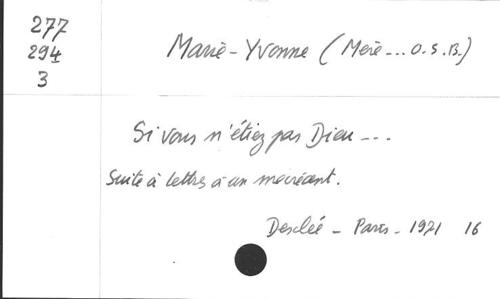 277
294
3
Marie-Yvonne (Mère... O.S.B.)
Si vous n'étiez pas Dieu...
Suite à lettres à un mécréant.
Desclée - Paris - 1971 16